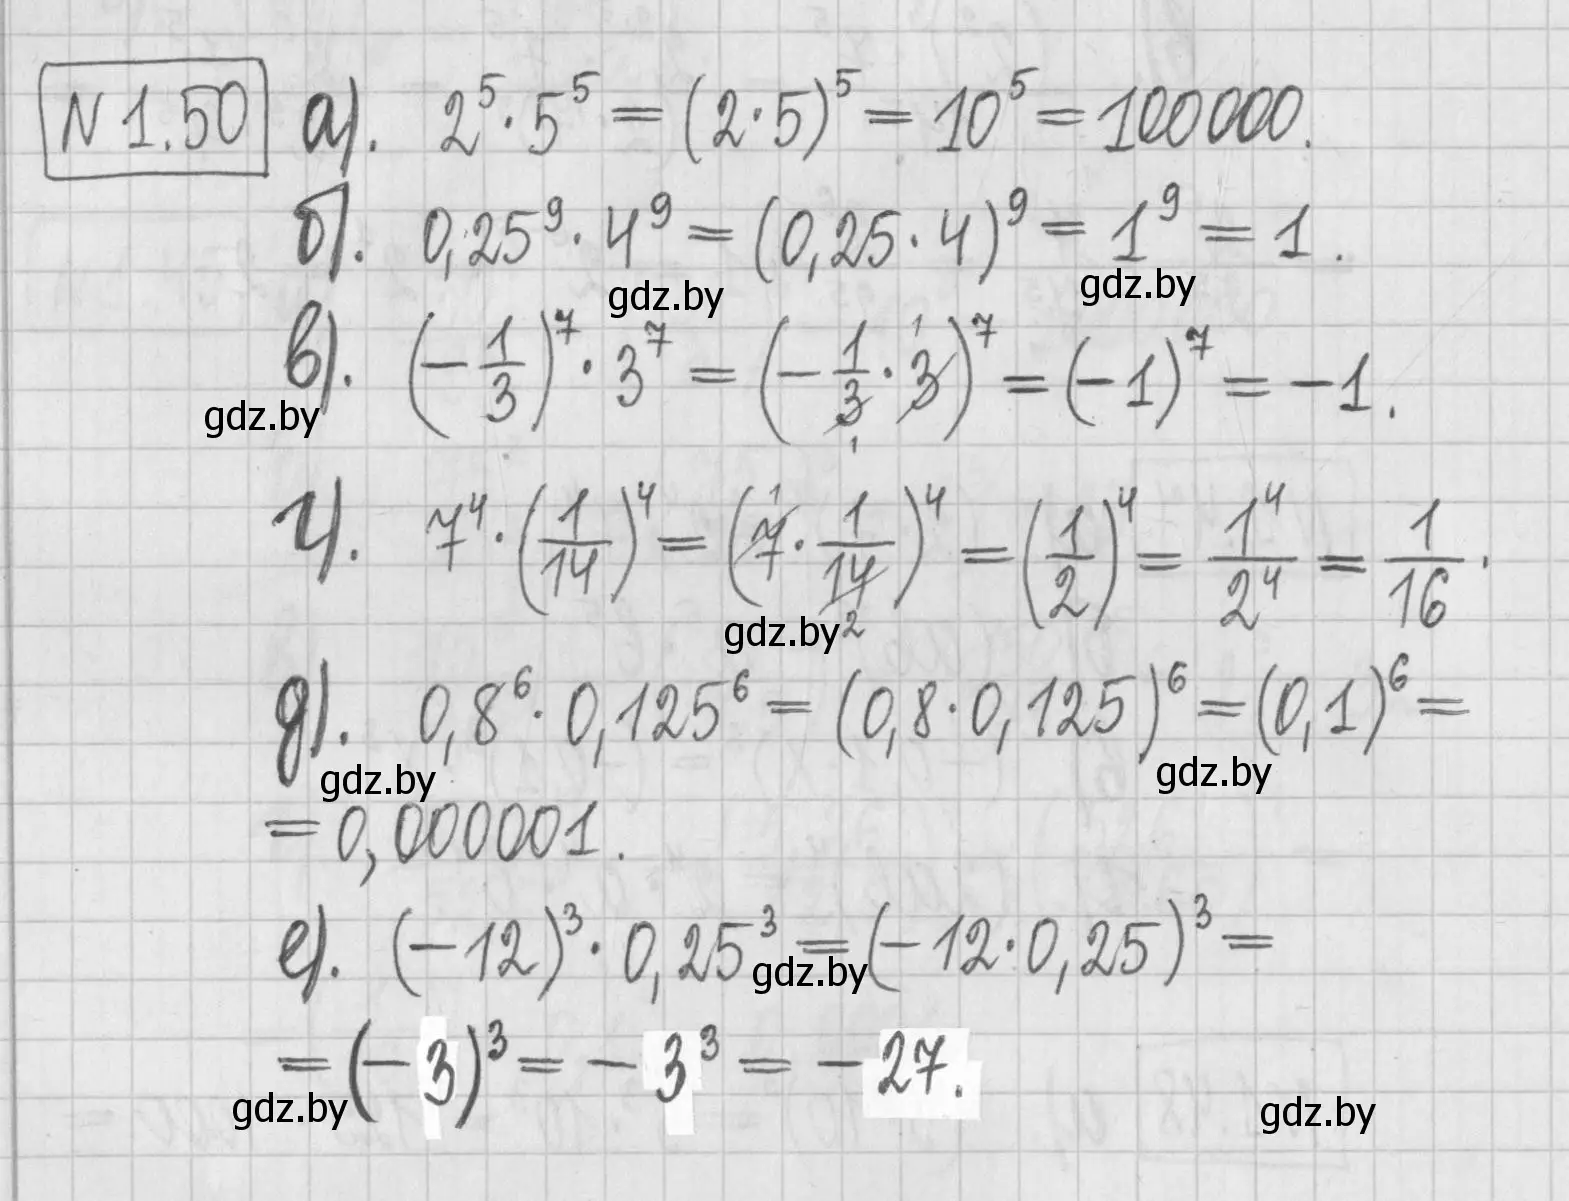 N 1.50 а). 2⁵·5⁵ = (2·5)⁵ = 10⁵ = 100000.
б). 0,25⁹·4⁹ = (0,25·4)⁹ = 1⁹ = 1.
gdz.by gdz.by
в). (-1/3)⁷·3⁷ = (-1/3·3)⁷ = (-1)⁷ = -1.
gdz.by
г). 7⁴·(1/14)⁴ = (7·1/14)⁴ = (1/2)⁴ = 1⁴/2⁴ = 1/16.
gdz.by
д). 0,8⁶·0,125⁶ = (0,8·0,125)⁶ = (0,1)⁶ =
gdz.by gdz.by
= 0,000001.
е). (-12)³·0,25³ = (-12·0,25)³ =
gdz.by
= (-3)³ = -3³ = -27.
gdz.by gdz.by